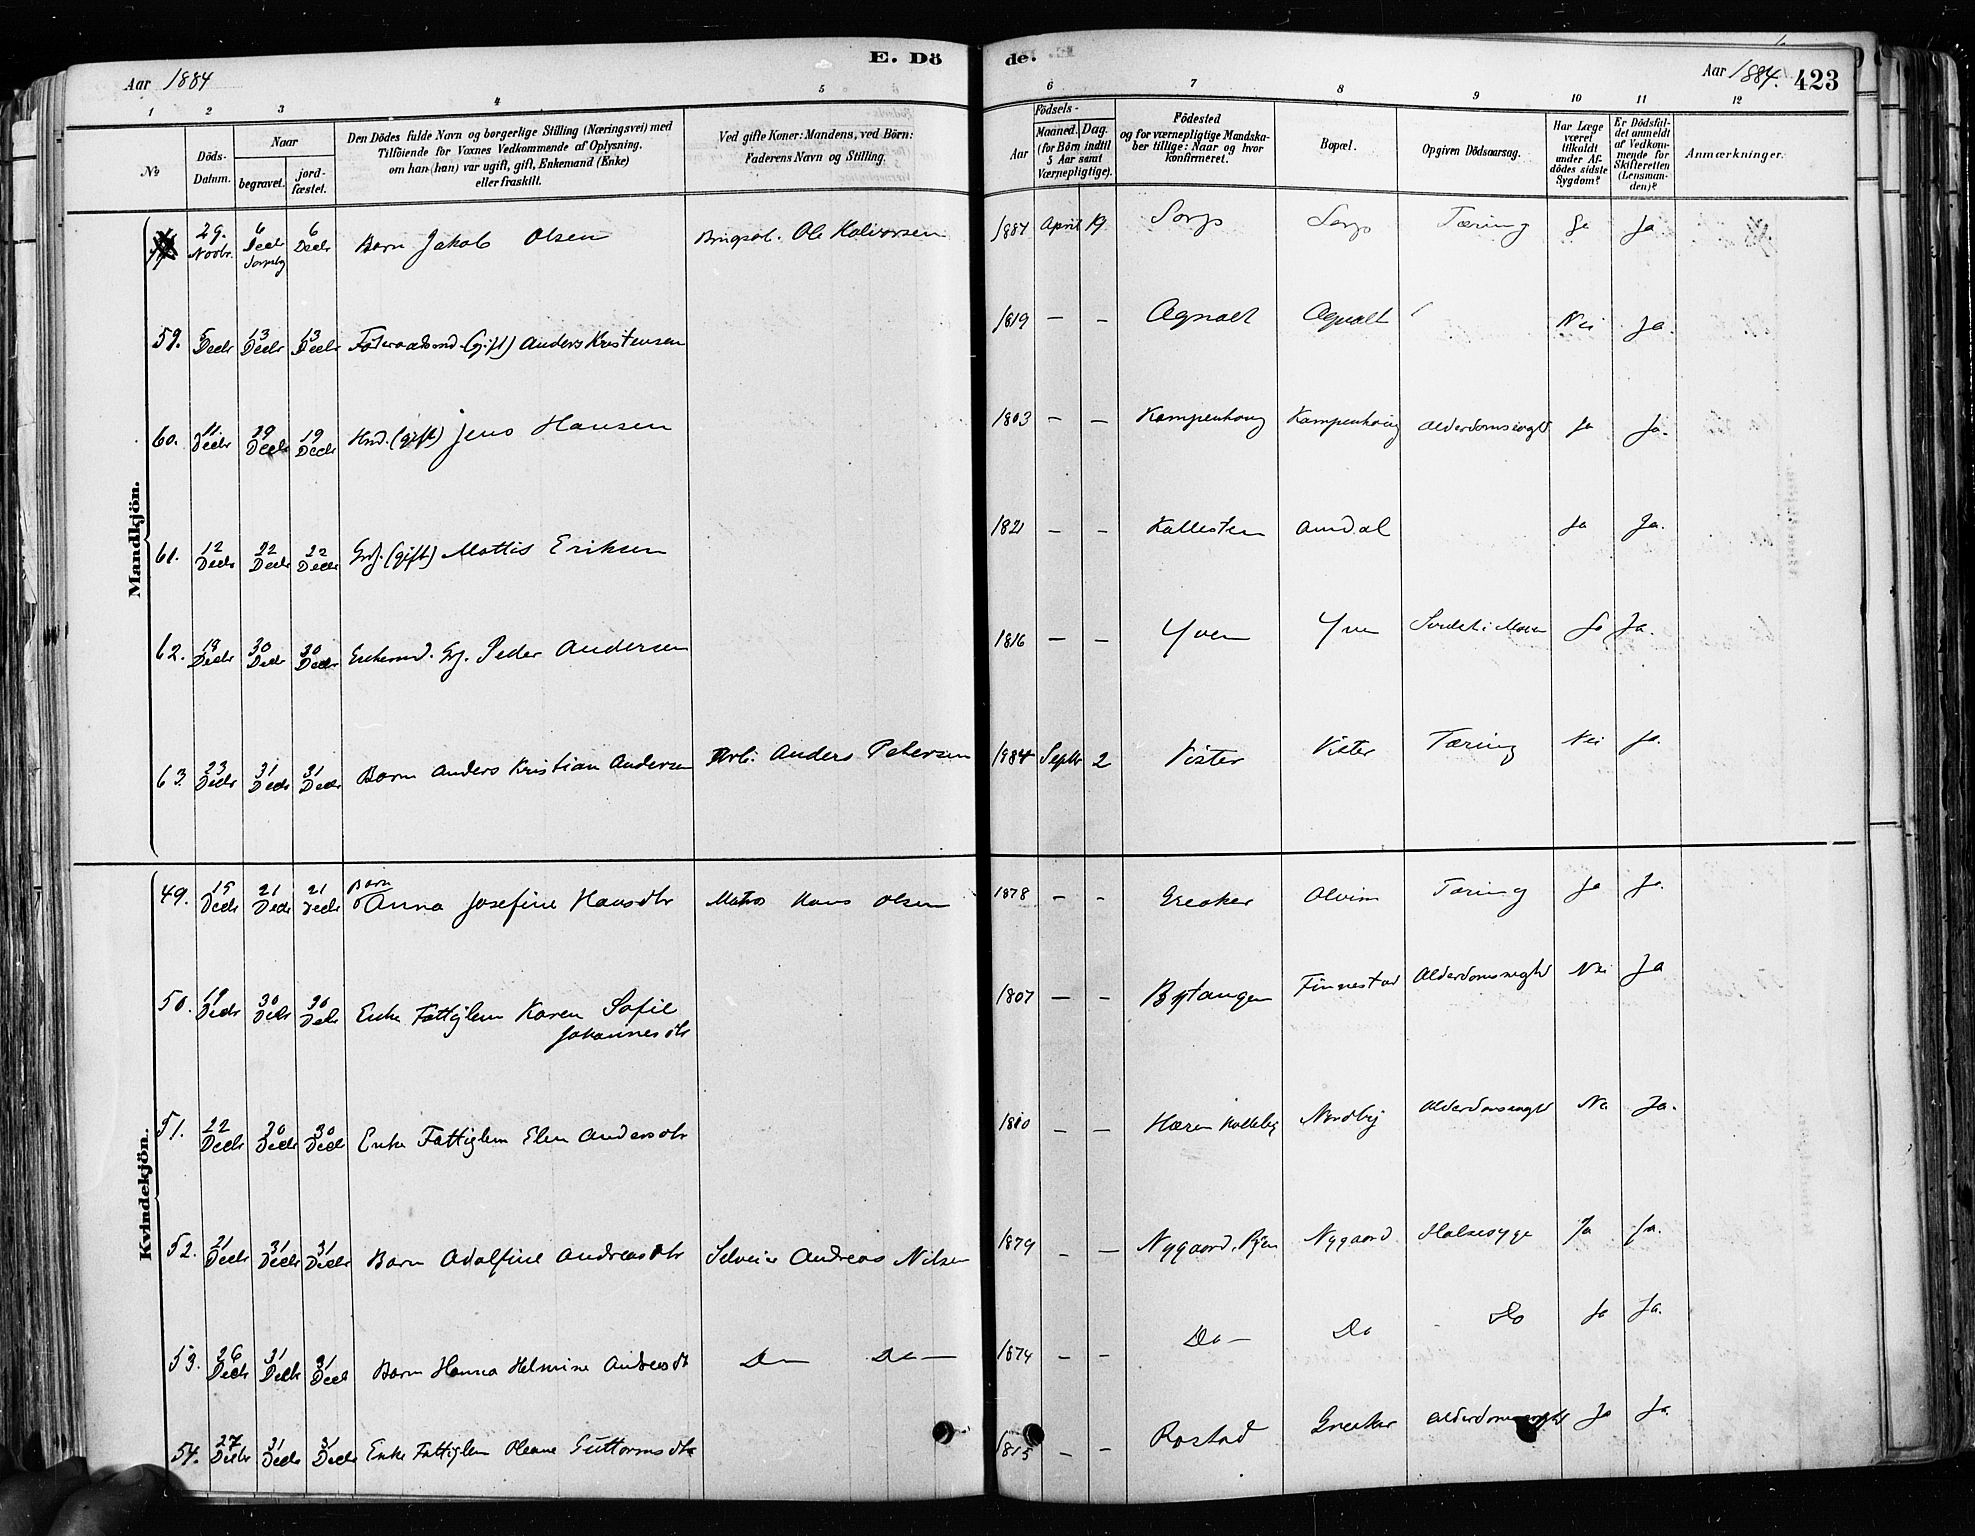 E. Dö de.
Aar 1884
Aar 1884. 423
1 2 3 4 5 6 7 8 9 10 11 12
No
Döds-Datum.
Naar
begravet.
jord-fæstet.
Den Dödes fulde Navn og borgerlige Stilling (Næringsvei) med
Tilföiende for Voxnes Vedkommende af Oplysning,
om han (hun) var ugift, gift, Enkemand (Enke)
eller fraskilt.
Ved gifte Koner: Mandens, ved Börn:
Faderens Navn og Stilling.
Födsels-
Aar
Maaned. Dag.
(for Börn indtil
5 Aar samt
Værnepligtige).
Födested
og for værnepligtige Mandska-
ber tillige: Naar og hvor
konfirmeret.
Bopæl.
Opgiven Dödsaarsag.
Har Læge
været
tilkaldt
under Af-
dödes sidste
Sygdom?
Er Dödsfal-
det anmeldt
af Vedkom-
mende for
Skifteretten
(Lensman-
den)?
Anmærkninger.
Mandkjön.
29. Novbr. 6 Decbr 6 Decbr Barn Jakob Olsen Ole Halvorsen 1884 April 19 Sorgs Sorgs Tæring Ja Ja
59. 5 Decbr 13 Decbr 13 Decbr Föderaadsmd. (gift) Anders Kristensen 1819 — — Agnalt Agnalt Nei Ja.
60. 11. Decbr 19 Decbr 19 Decbr Hmd. (gift) Jens Hansen 1803 — — Kampenhoug Kampenhoug Alderdomssvaghd Ja Ja.
61. 12 Decbr 22 Decbr 22 Decbr Grj. (gift) Mattis Eriksen 1821 — — Kallesten Aundal Ja Ja.
62. 19 Decbr 30 Decbr 30 Decbr Enkemd. Grj. Peder Andersen 1816 — — Yven Yven Ja Ja.
63. 23 Decbr 31 Decbr 31 Decbr Barn Anders Kristian Andersen Arb. Anders Petersen 1884 Septbr 2 Vister Vister Tæring Nei Ja.
Kvindekjön.
49. 15 Decbr 21 Decbr 21 Decbr Barn Anna Josefine Hansdtr Matros Hans Olsen 1878 — — Greaker Alvim Tæring Ja Ja.
50. 19 Decbr 30 Decbr 30 Decbr Enke Fattiglem Karen Sofie
Johannesdtr 1807 — — Bytangen Finnestad Alderdomssvaghd Nei Ja
51. 22 Decbr 30 Decbr 30 Decbr Enke Fattiglem Elen Andersdtr 1810 — — Nordby Alderdomssvaghd Nei Ja.
52. 21 Decbr 31 Decbr 31 Decbr Barn Adolfine Andreasdtr Selveier Andreas Nilsen 1879 — — Nygaard, Nygaard Halssyge Ja Ja.
53. 26 Decbr 31 Decbr 31 Decbr Barn Hanna Helmine Andreasdtr Do — Do — 1874 — — Do — Do Do Ja Ja.
54. 27 Decbr 31 Decbr 31 Decbr Enke Fattiglem Oleane Guttormsdtr 1815 — — Rostad Greaker Alderdomssvaghd Ja Ja.